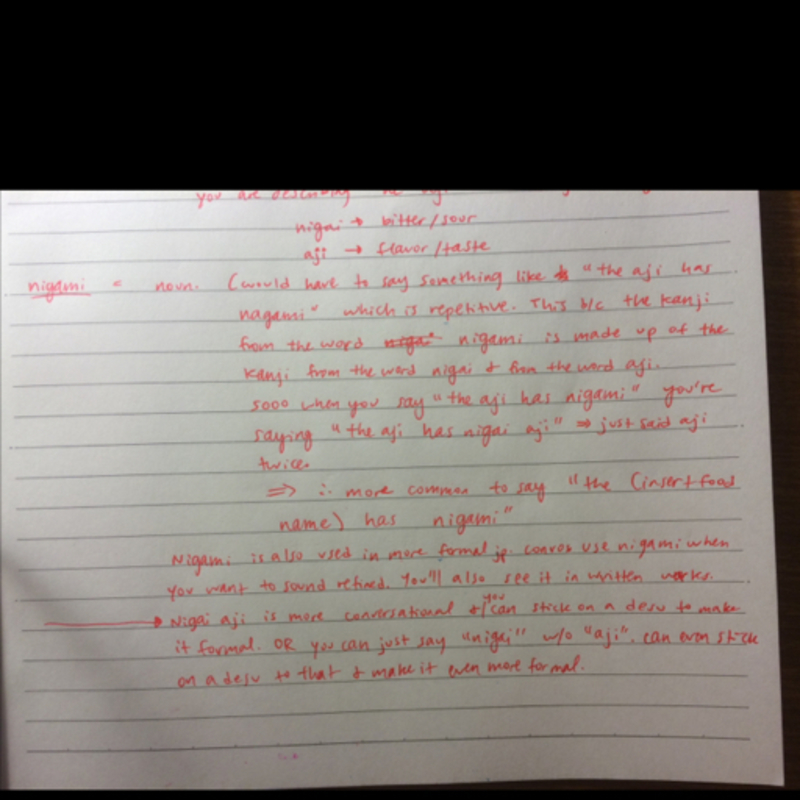 you are describing
nigai → bitter/sour
aji → flavor/taste
nigami = noun. (would have to say something like "the aji has
nagami" which is repetitive. This b/c the kanji
from the word nigami is made up of the
kanji from the word nigai & from the word aji.
sooo when you say "the aji has nigami" you're
saying "the aji has nigai aji" ⇒ just said aji
twice.
⇒ ∴ more common to say "the (insert food
name) has nigami"
Nigami is also used in more formal jp. convos use nigami when
you want to sound refined. You'll also see it in written works.
→ Nigai aji is more conversational & you can stick on a desu to make
it formal. OR you can just say "nigai" w/o "aji". can even stick
on a desu to that & make it even more formal.